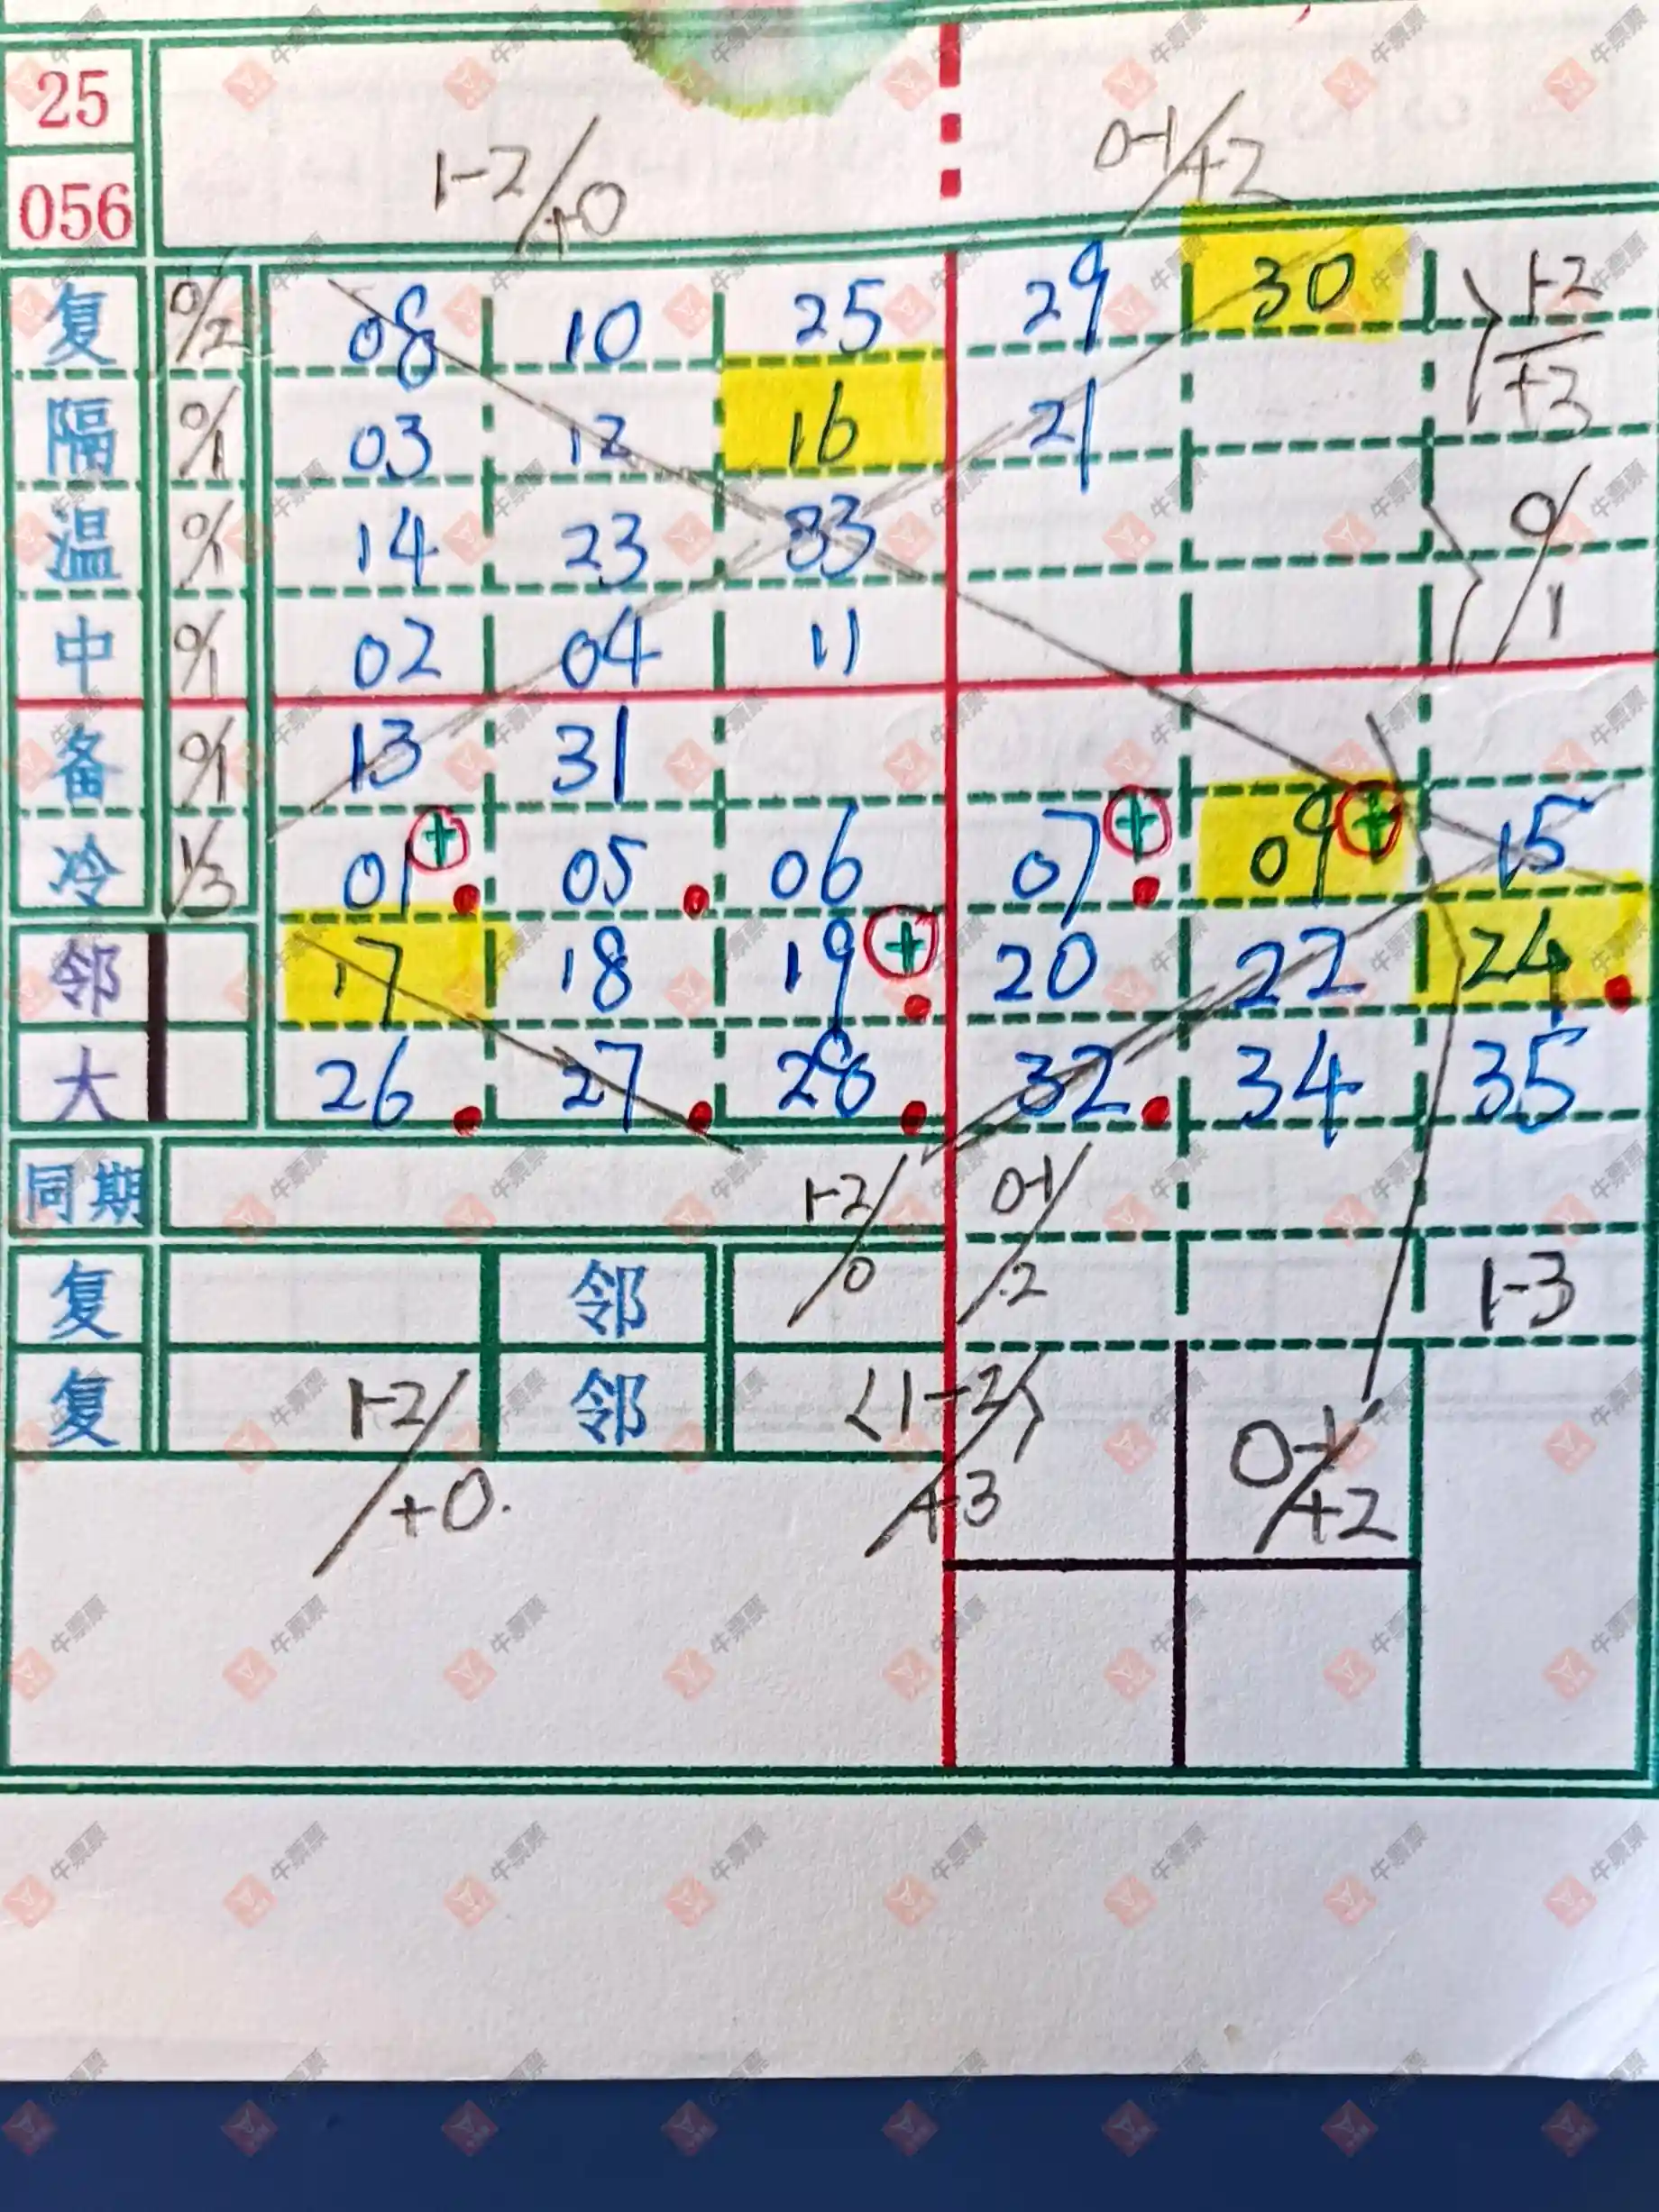 25
056
1-2/+0
0-1/+2
复 0/2 08 10 25 29 30 1-2/+3
隔 0/1 03 12 16 21
温 0/1 14 23 33 0/1
中 0/1 02 04 11
备 0/1 13 31
冷 1/3 01 + 05 06 07 + 09 + 15
邻 17 18 19 + 20 22 24
大 26 27 28 32 34 35
同期 1-2/0 0-1/2
复 邻 1-3
复 1-2/+0. 邻 <1-2>/+3 0-1/+2
牛票票